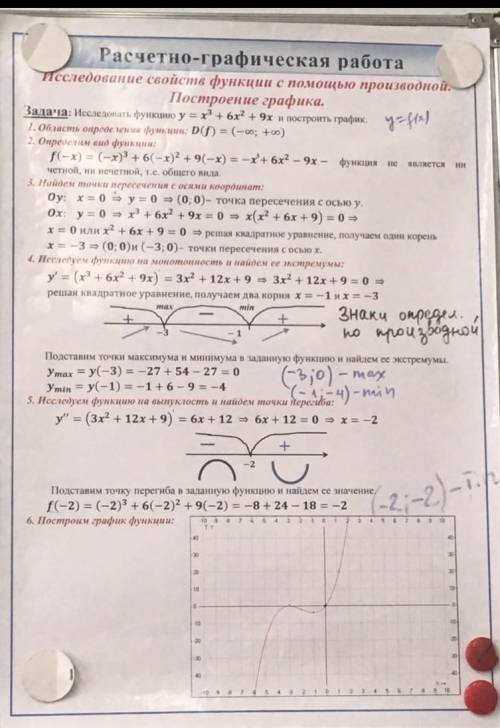 Расчетно-графическая работа
Исследование свойств функции с помощью производной.
Построение графика.
Задача: Исследовать функцию y = x³ + 6x² + 9x и построить график. y=f(x)
1. Область определения функции: D(f) = (−∞; +∞)
2. Определим вид функции:
f(−x) = (−x)³ + 6(−x)² + 9(−x) = −x³ + 6x² − 9x − функция не является ни
четной, ни нечетной, т.е. общего вида.
3. Найдем точки пересечения с осями координат:
Oy: x = 0 ⇒ y = 0 ⇒ (0; 0)− точка пересечения с осью y.
Ox: y = 0 ⇒ x³ + 6x² + 9x = 0 ⇒ x(x² + 6x + 9) = 0 ⇒
x = 0 или x² + 6x + 9 = 0 ⇒ решая квадратное уравнение, получаем один корень
x = −3 ⇒ (0; 0)и (−3; 0)− точки пересечения с осью x.
4. Исследуем функцию на монотонность и найдем ее экстремумы:
y′ = (x³ + 6x² + 9x)′ = 3x² + 12x + 9 ⇒ 3x² + 12x + 9 = 0 ⇒
решая квадратное уравнение, получаем два корня x = −1 и x = −3
max min
+ − +
−3 −1
Знаки определ.
по производной
Подставим точки максимума и минимума в заданную функцию и найдем ее экстремумы.
y max = y(−3) = −27 + 54 − 27 = 0 (-3;0) - max
y min = y(−1) = −1 + 6 − 9 = −4 (-1;-4) - min
5. Исследуем функцию на выпуклость и найдем точки перегиба:
y″ = (3x² + 12x + 9)′ = 6x + 12 ⇒ 6x + 12 = 0 ⇒ x = −2
− +
−2
Подставим точку перегиба в заданную функцию и найдем ее значение.
f(−2) = (−2)³ + 6(−2)² + 9(−2) = −8 + 24 − 18 = −2 (-2;-2) - т.п
6. Построим график функции: